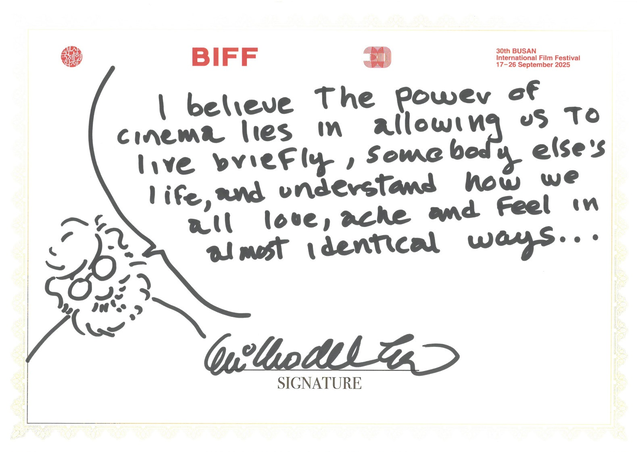 BIFF
30
30th BUSAN
International Film Festival
17–26 September 2025
I believe The power of
cinema lies in allowing us To
live briefly, somebody else's
life, and understand how we
all love, ache and feel in
almost identical ways...
SIGNATURE